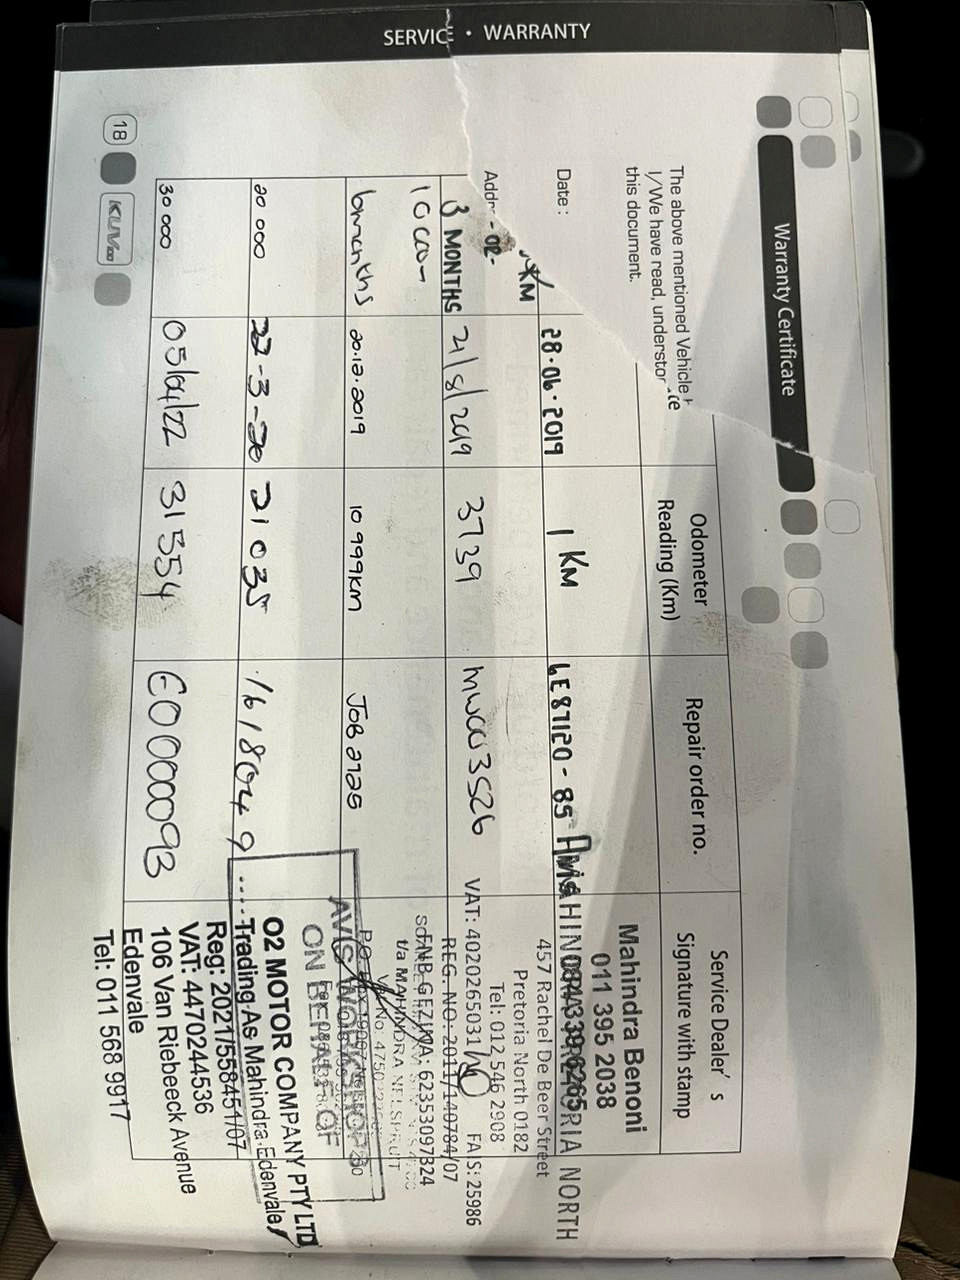 SERVICE • WARRANTY
Warranty Certificate
The above mentioned Vehicle
I/We have read, understo
this document.
Date :
Odometer
Reading (Km)
Repair order no.
Service Dealer's
Signature with stamp
KM
28.06.2019
1 KM
6E87120-85
Mahindra Benoni
011 395 2038
MAHINDRA PRETORIA NORTH
457 Rachel De Beer Street
Pretoria North 0182
Tel: 012 546 2908
3 MONTHS
21/8/2019
3739
VAT: 4020265031
FAIS: 25986
REG. NO: 2011/140784/07
FNB GEZINA: 62353097324
6months
20.12.2019
10 999km
JOB 2725
t/a MAHINDRA NELSPRUIT
AVIS WORKSHOP
ON BEHALF OF
20 000
21035
1618049
O2 MOTOR COMPANY PTY LTD
Trading As Mahindra Edenvale
Reg: 2021/558451/07
VAT: 4470244536
106 Van Riebeeck Avenue
Edenvale
Tel: 011 568 9917
30 000
05/04/22
31554
E0000093
18
KUV100